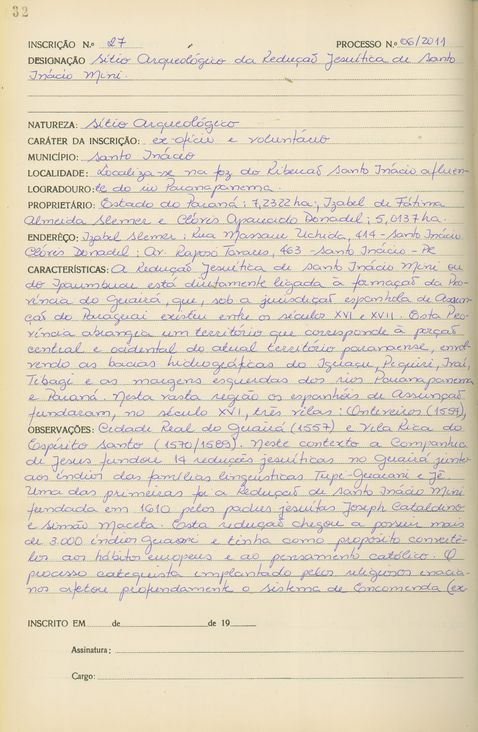 32
INSCRIÇÃO N.º 27 PROCESSO N.º 06/2011
DESIGNAÇÃO Sítio Arqueológico da Redução Jesuítica de Santo
Inácio Mini.
NATUREZA: Sítio Arqueológico
CARÁTER DA INSCRIÇÃO: ex-ofício e voluntário
MUNICÍPIO: Santo Inácio
LOCALIDADE: Localiza-se na foz do Ribeirão Santo Inácio afluen-
LOGRADOURO: te do rio Paranapanema.
PROPRIETÁRIO: Estado do Paraná: 7,2322ha; Izabel de Fátima
Almeida Slemer e Clóres Aparecido Donadel: 5,0137ha.
ENDERÊÇO: Izabel Slemer: Rua Massami Uchida, 414 - Santo Inácio
Clóres Donadel: Av. Raposo Tavares, 463 - Santo Inácio - PR
CARACTERÍSTICAS: A Redução Jesuítica de Santo Inácio Mini ou
do Ipaumbucu está diretamente ligada à formação da Pro-
víncia do Guairá, que, sob a jurisdição espanhola de Assun-
ção do Paraguai existiu entre os séculos XVI e XVII. Esta Pro-
víncia abrangia um território que corresponde à porção
central e ocidental do atual território paranaense, envol-
vendo as bacias hidrográficas do Iguaçu, Piquiri, Ivaí,
Tibagi e as margens esquerdas dos rios Paranapanema
e Paraná. Nesta vasta região os espanhóis de Assunção
fundaram, no século XVI, três vilas: Ontiveiros (1554),
OBSERVAÇÕES: Cidade Real do Guairá (1557) e Vila Rica do
Espírito Santo (1570/1589). Neste contexto a Companhia
de Jesus fundou 14 reduções jesuíticas no Guairá junto
aos índios das famílias linguísticas Tupi-Guarani e Jê.
Uma das primeiras foi a Redução de Santo Inácio Mini
fundada em 1610 pelos padres jesuítas Joseph Cataldino
e Simão Maceta. Esta redução chegou a possuir mais
de 3.000 índios Guarani e tinha como propósito convertê-
los aos hábitos europeus e ao pensamento católico. O
processo catequista implantado pelos religiosos inacia-
nos afetou profundamente o sistema de Encomenda (ex-
INSCRITO EM de de 19
Assinatura:
Cargo: